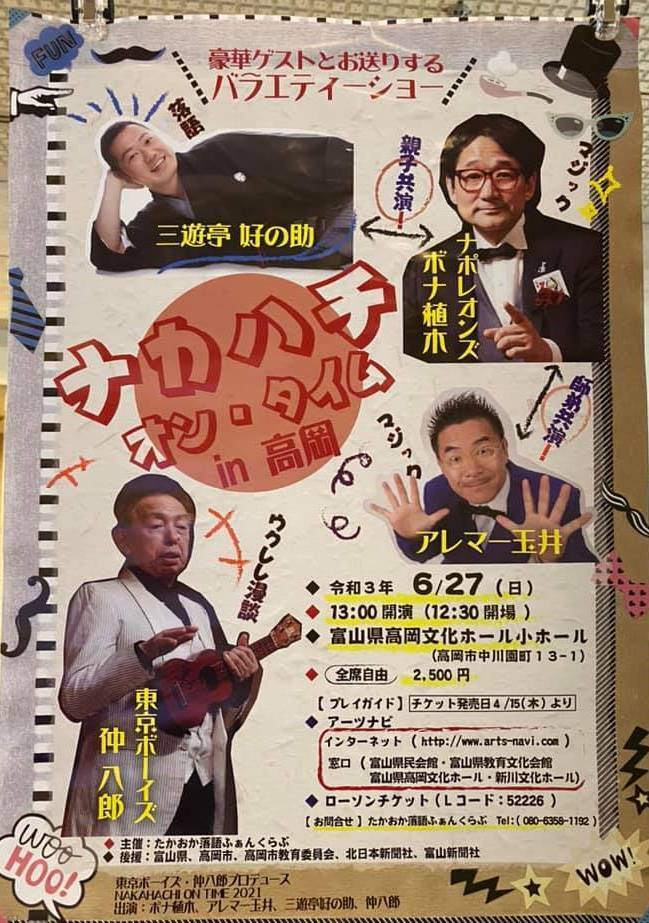 FUN
豪華ゲストとお送りする
バラエティーショー
落語
三遊亭 好の助
親子共演!
マジック
ナポレオンズ
ボナ植木
ナカハチ
オン・タイム
in 高岡
師弟共演!
マジック
アレマー玉井
ウクレレ漫談
東京ボーイズ
仲 八郎
◆ 令和3年 6/27(日)
◆ 13:00 開演(12:30 開場 )
◆ 富山県高岡文化ホール小ホール
(高岡市中川園町13-1)
◆ 全席自由 2,500 円
【プレイガイド】 チケット発売日4/15(木)より
◆ アーツナビ
インターネット ( http://www.arts-navi.com )
窓口 ( 富山県民会館・富山県教育文化会館
富山県高岡文化ホール・新川文化ホール)
◆ ローソンチケット ( Lコード : 52226 )
【お問合せ】たかおか落語ふぁんくらぶ Tel:( 080-6358-1192 )
◆ 主催:たかおか落語ふぁんくらぶ
◆ 後援:富山県、高岡市、高岡市教育委員会、北日本新聞社、富山新聞社
東京ボーイズ・仲八郎プロデュース
NAKAHACHI ON TIME 2021
出演:ボナ植木、アレマー玉井、三遊亭好の助、仲八郎
WOO
HOO!
WOW!